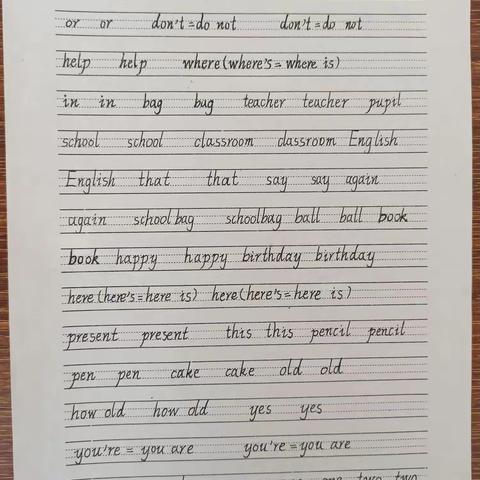 or or don't=do not don't=do not
help help where(where's=where is)
in in bag bag teacher teacher pupil
school school classroom classroom English
English that that say say again
again schoolbag schoolbag ball ball book
book happy happy birthday birthday
here(here's=here is) here(here's=here is)
present present this this pencil pencil
pen pen cake cake old old
how old how old yes yes
you're=you are you're=you are
one two two